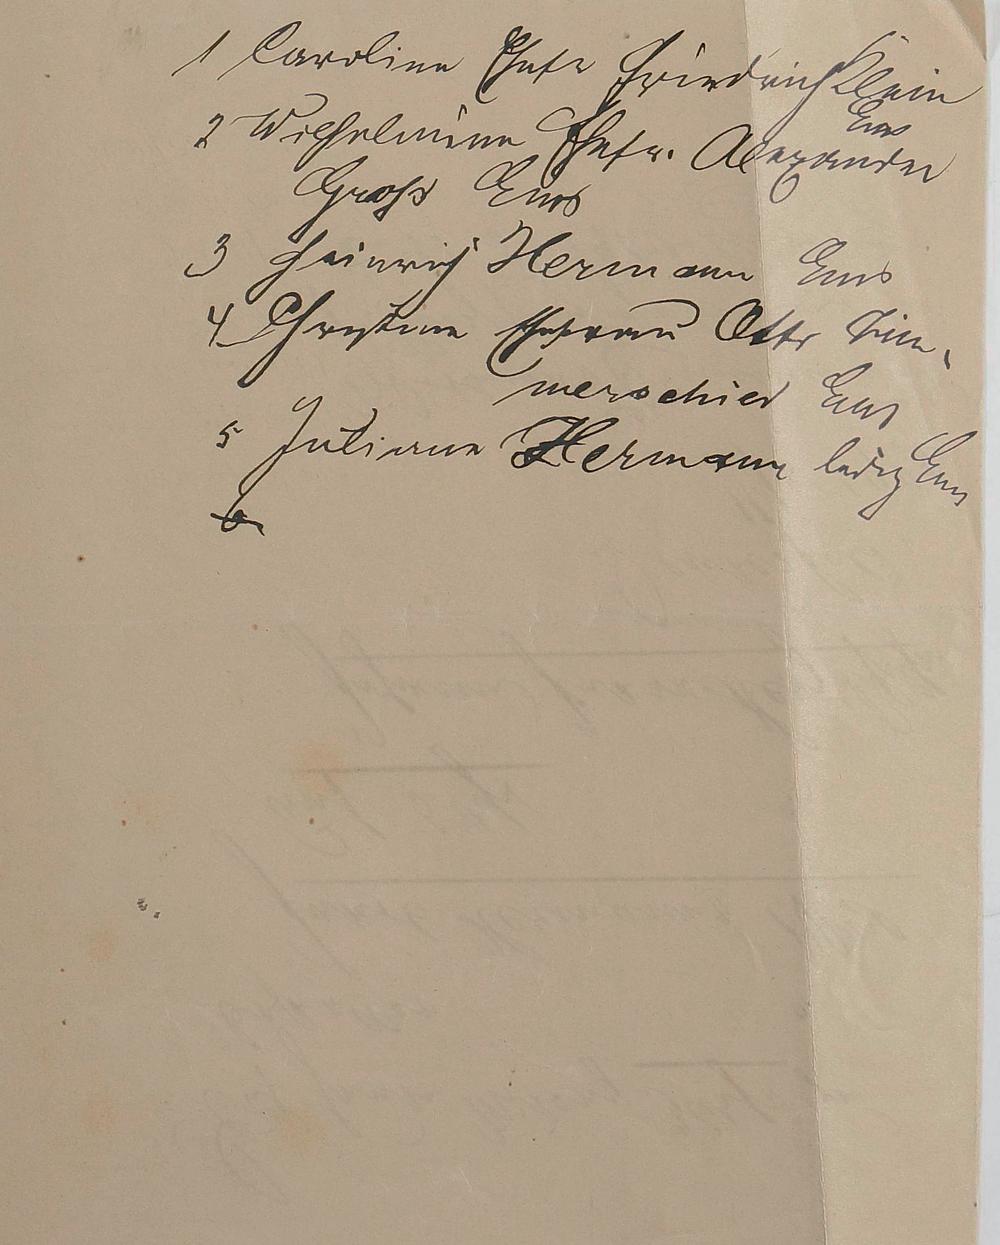 1 Caroline Ehefr Friedrich Klein
Ems
2 Wilhelmine Ehefr. Alexander
Groß Ems
3 Heinrich Hermann Ems
4 Christine Ehefrau Otto Zim-
merschied Ems
5 Juliane Hermann ledig Ems